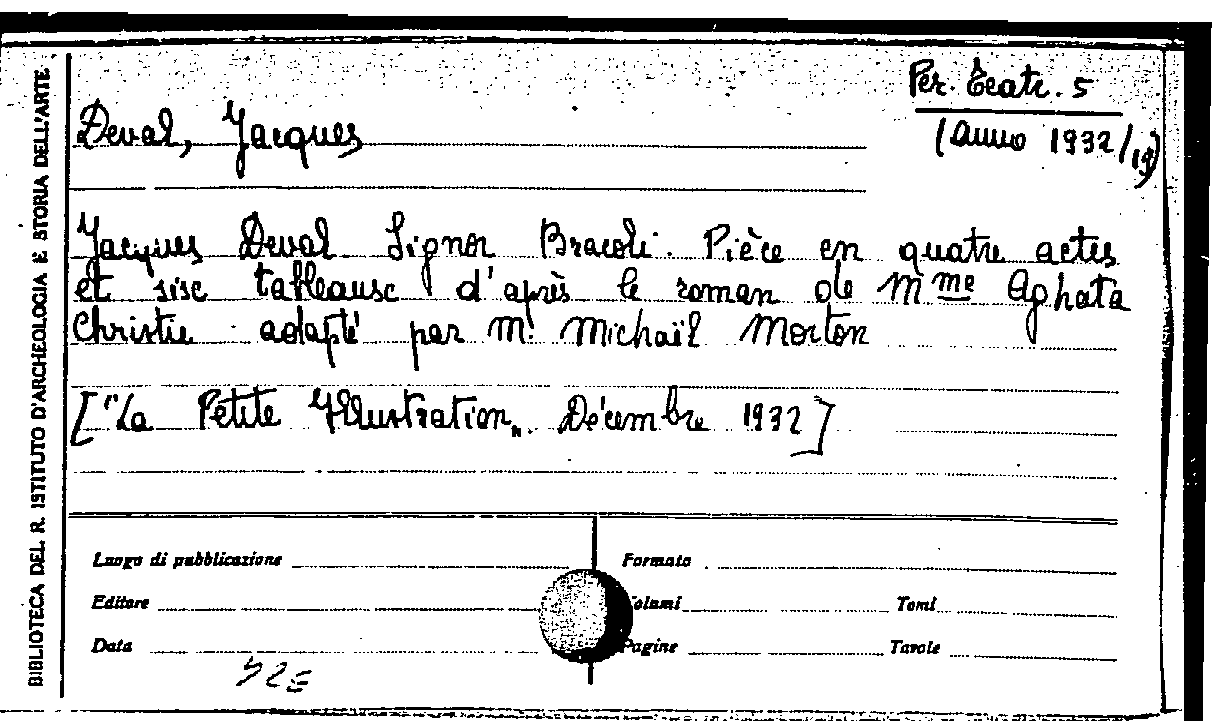 BIBLIOTECA DEL R. ISTITUTO D'ARCHEOLOGIA E STORIA DELL'ARTE
Per. Teatr. 5
(anno 1932/19)
Deval, Jacques
Jacques Deval Signor Bracoli. Pièce en quatre actes
et six tableaux d'après le roman de Mme Aghata
Christie adapté par M. Michaël Morton
["La Petite Illustration„ Décembre 1932]
Luogo di pubblicazione
Formato
Editore
Volumi
Tomi
Data
Pagine
Tavole